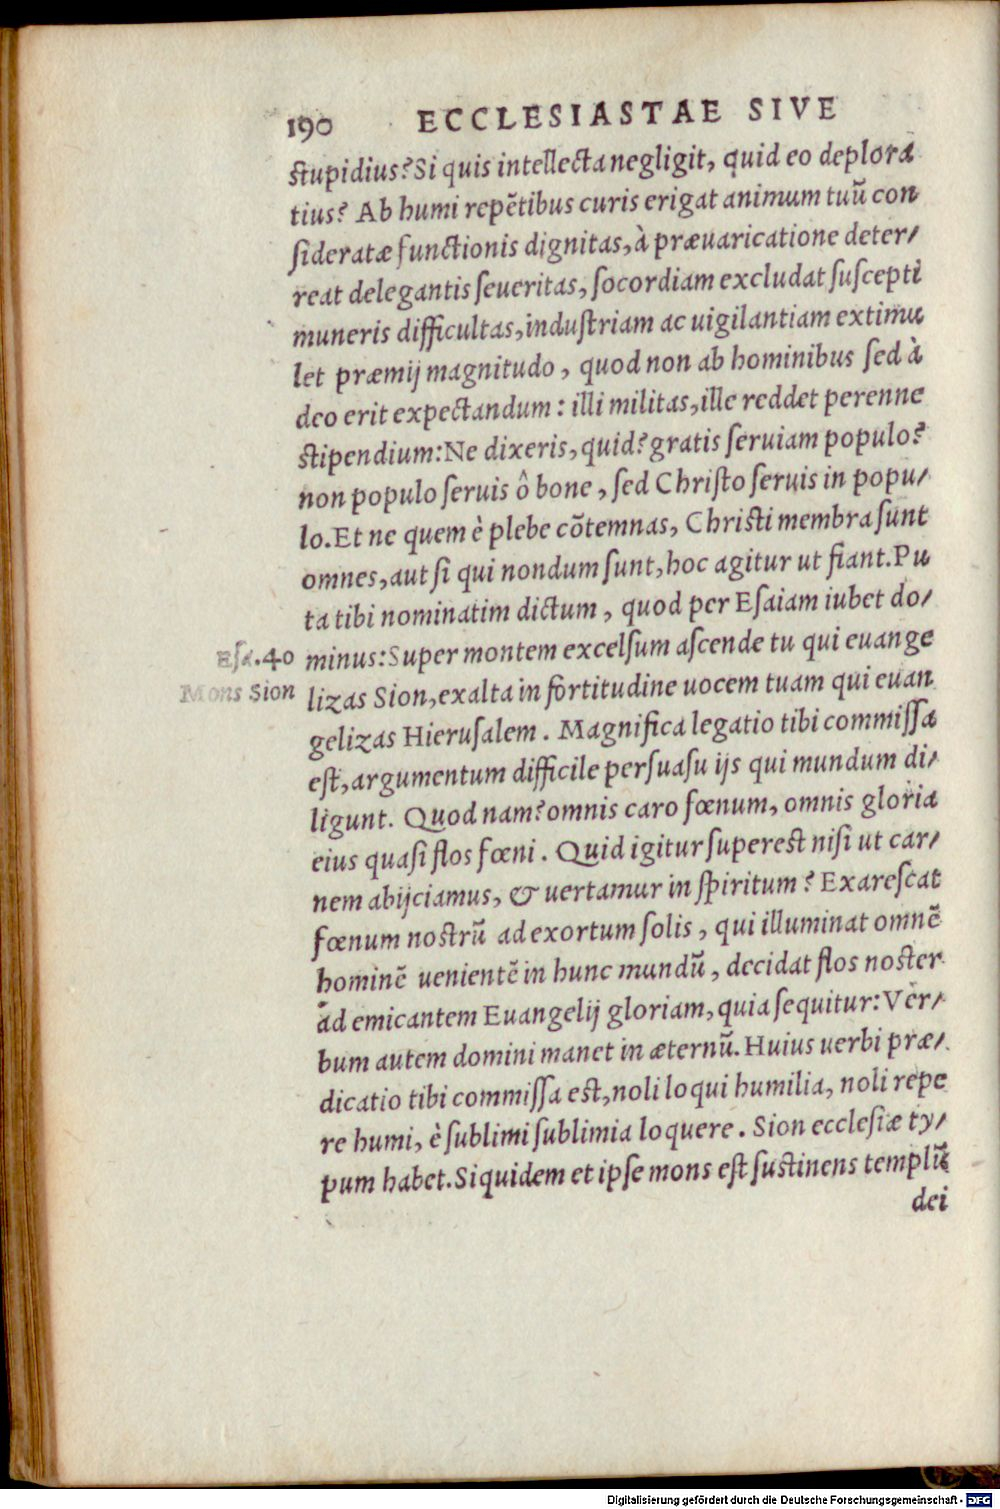 190 ECCLESIASTAE SIVE
stupidius? Si quis intellecta negligit, quid eo deplora
tius? Ab humi repẽtibus curis erigat animum tuũ con
sideratæ functionis dignitas, à præuaricatione deter/
reat delegantis seueritas, socordiam excludat suscepti
muneris difficultas, industriam ac uigilantiam extimu
let præmij magnitudo, quod non ab hominibus sed à
deo erit expectandum: illi militas, ille reddet perenne
stipendium: Ne dixeris, quid? gratis seruiam populo?
non populo seruis ô bone, sed Christo seruis in popu/
lo. Et ne quem è plebe cõtemnas, Christi membra sunt
omnes, aut si qui nondum sunt, hoc agitur ut fiant. Pu
ta tibi nominatim dictum, quod per Esaiam iubet do/
Esa. 40
minus: Super montem excelsum ascende tu qui euange
Mons Sion
lizas Sion, exalta in fortitudine uocem tuam qui euan
gelizas Hierusalem. Magnifica legatio tibi commissa
est, argumentum difficile persuasu ijs qui mundum di/
ligunt. Quod nam? omnis caro fœnum, omnis gloria
eius quasi flos fœni. Quid igitur superest nisi ut car/
nem abijciamus, & uertamur in spiritum? Exarescat
fœnum nostrũ ad exortum solis, qui illuminat omnẽ
hominẽ uenientẽ in hunc mundũ, decidat flos noster
ad emicantem Euangelij gloriam, quia sequitur: Ver/
bum autem domini manet in æternũ. Huius uerbi præ/
dicatio tibi commissa est, noli loqui humilia, noli repe
re humi, è sublimi sublimia loquere. Sion ecclesiæ ty/
pum habet. Siquidem et ipse mons est sustinens templũ
dei
Digitalisierung gefördert durch die Deutsche Forschungsgemeinschaft - DFG